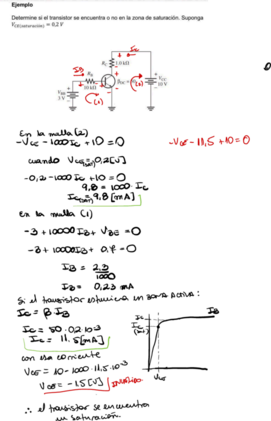 Ejemplo
Determine si el transistor se encuentra o no en la zona de saturación. Suponga
VCE(saturación) = 0,2 V
Ic
RC 1.0 kΩ
IB
RB
10 kΩ
VBB
3 V
VCC
10 V
(1)
(2)
En la malla (2)
-VCE - 1000 Ic + 10 = 0
-VCE - 11,5 + 10 = 0
cuando VCE(sat) = 0,2[V]
-0,2 - 1000 Ic + 10 = 0
9,8 = 1000 Ic
Ic(sat) = 9,8 [mA]
En la malla (1)
-3 + 10000 IB + VBE = 0
-3 + 10000 IB + 0,7 = 0
IB = 2,3
IB = 0,23 mA
Si el transistor estuviera en zona Activa:
Ic = β IB
Ic = 50 · 0,2 · 10⁻³
Ic = 11,5 [mA]
con esa corriente
VCE = 10 - 1000 · 11,5 · 10⁻³
VCE = -1,5 [V]
∴ el transistor se encuentra
en saturación.
Ic
IB
Ic
(sat)
VCE